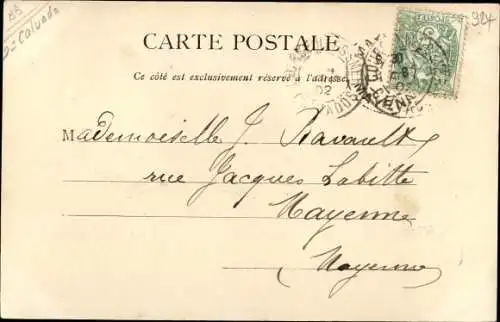 BB
D= Calvados
324
CARTE POSTALE
Ce côté est exclusivement réservé à l'adresse
02
CALVADOS
MAYENNE
Mademoiselle J. Ravault
rue Jacques Labitte
Mayenne
Mayenne